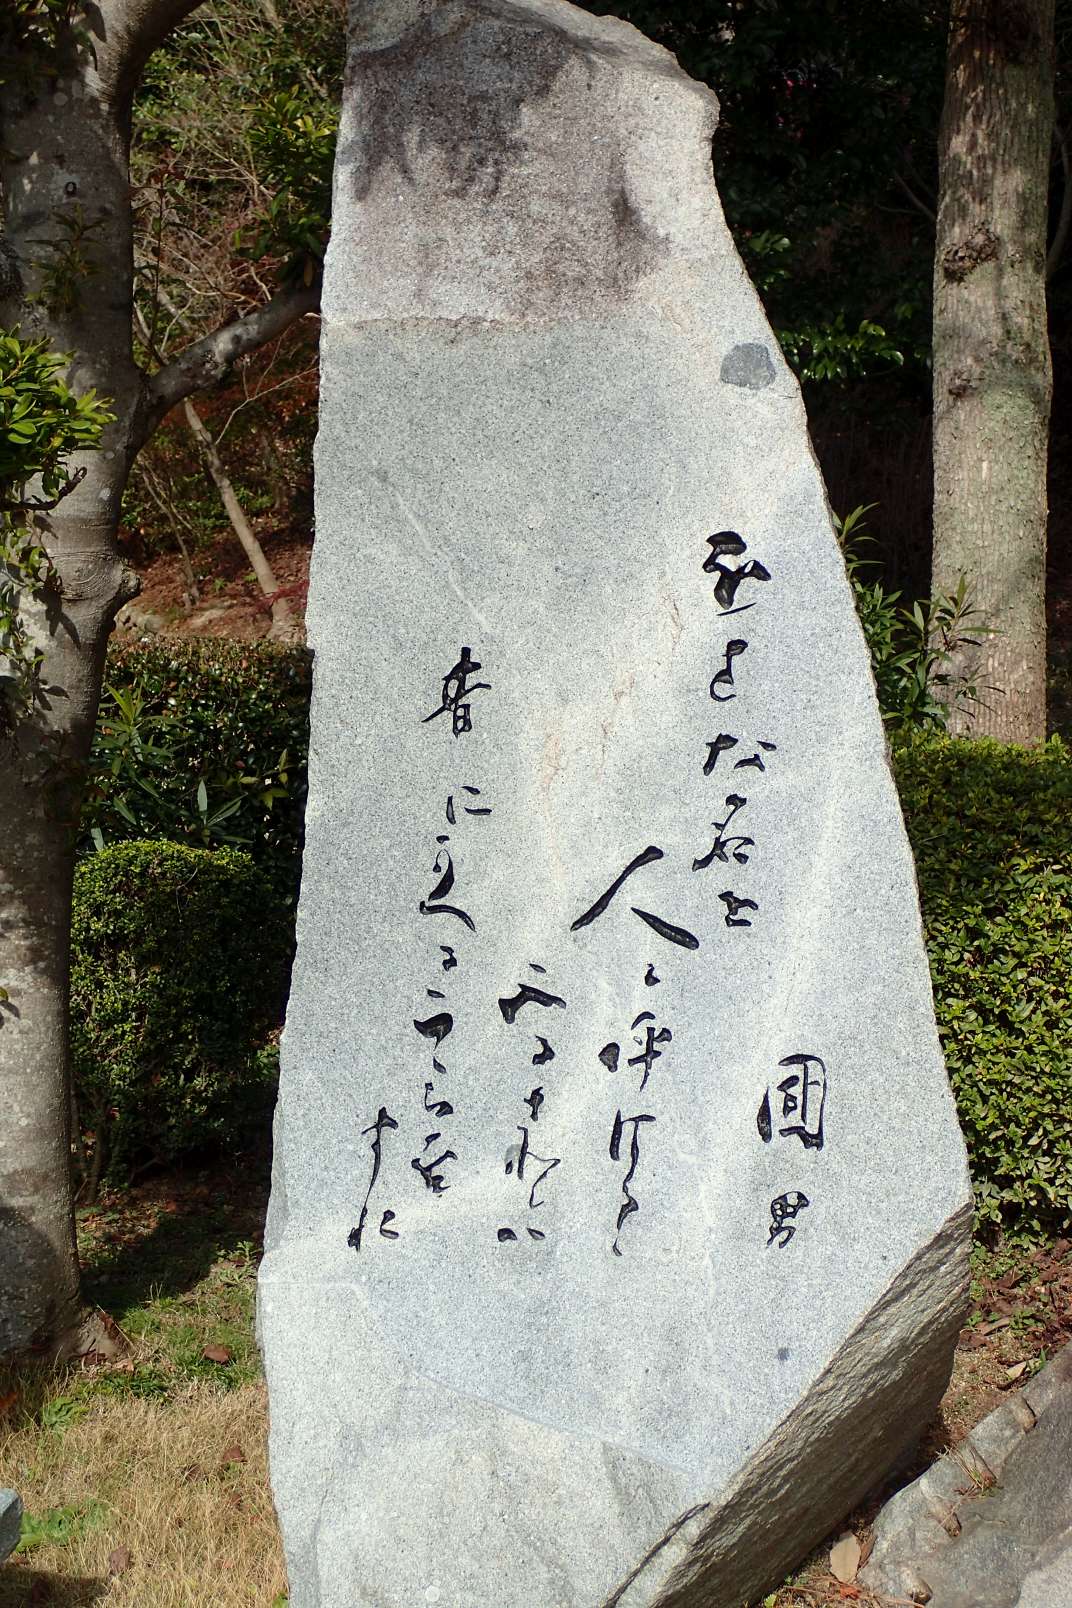 國男
をさな名を
人に呼ばるゝ
ふるさとハ
昔にかへるこゝちこそ
すれ